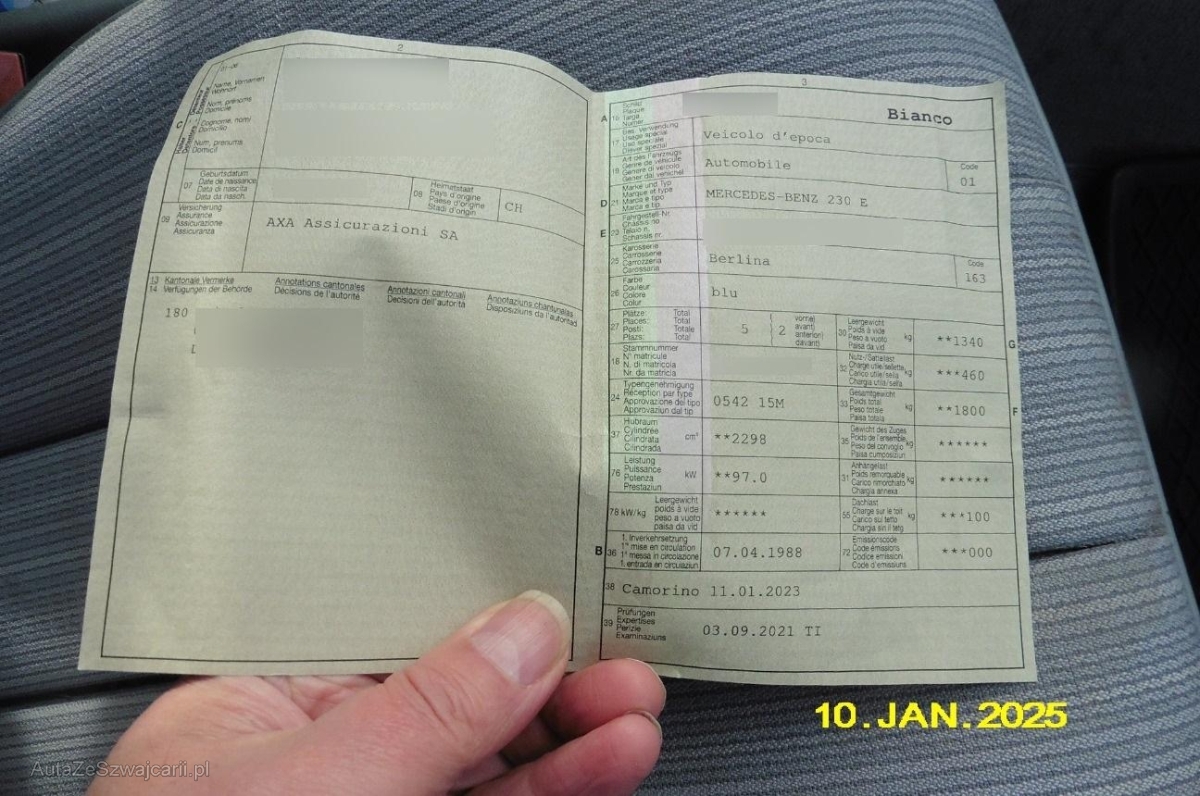 2
01-06
Name, Vornamen
Wohnort
Nom, prénoms
Domicile
Cognome, nomi
Domicilio
Num, prenums
Domicil
C
07
Geburtsdatum
Date de naissance
Data di nascita
Data da nasch.
08
Heimatstaat
Pays d'origine
Paese d'origine
Stadi d'origin
CH
09
Versicherung
Assurance
Assicurazione
Assicuranza
AXA Assicurazioni SA
13
14
Kantonale Vermerke
Verfügungen der Behörde
Annotations cantonales
Décisions de l'autorité
Annotazioni cantonali
Decisioni dell'autorità
Annotaziuns chantunalas
Disposiziuns da l'autoritad
180
3
A
15
Schild
Plaque
Targa
Numer
Bianco
17
Bes. Verwendung
Usage spécial
Uso speciale
Diever spezial
Veicolo d'epoca
19
Art des Fahrzeugs
Genre de véhicule
Genere di veicolo
Gener dal vehichel
Automobile
Code
01
D
21
Marke und Typ
Marque et type
Marca e tipo
Marca e tip
MERCEDES-BENZ 230 E
E
23
Fahrgestell-Nr.
Châssis no
Telaio n.
Schassis nr.
25
Karosserie
Carrosserie
Carrozzeria
Carossaria
Berlina
Code
163
26
Farbe
Couleur
Colore
Colur
blu
27
Plätze: Total
Places: Total
Posti: Totale
Plazs: Total
5
2
vorne)
avant)
anteriori)
davant)
30
Leergewicht
Poids à vide
Peso a vuoto
Paisa da vid
kg
**1340
G
18
Stammnummer
N° matricule
N. di matricola
Nr. da matricla
32
Nutz-/Sattellast
Charge utile/sellette
Carico utile/sella
Chargia utila/sella
kg
***460
24
Typengenehmigung
Réception par type
Approvazione del tipo
Approvaziun dal tip
0542 15M
33
Gesamtgewicht
Poids total
Peso totale
Paisa totala
kg
**1800
F
37
Hubraum
Cylindrée
Cilindrata
Cilindrada
cm³
**2298
35
Gewicht des Zuges
Poids de l'ensemble
Peso del convoglio
Paisa cumposiziun
kg
******
76
Leistung
Puissance
Potenza
Prestaziun
kW
**97.0
31
Anhängelast
Poids remorquable
Carico rimorchiato
Chargia annexa
kg
******
78 kW/kg
Leergewicht
poids à vide
peso a vuoto
paisa da vid
******
55
Dachlast
Charge sur le toit
Carico sul tetto
Chargia sin il tetg
kg
***100
B
36
1. Inverkehrsetzung
1re mise en circulation
1a messa in circolazione
1. entrada en circulaziun
07.04.1988
72
Emissionscode
Code émissions
Codice emissioni
Code d'emissiuns
***000
38
Camorino 11.01.2023
39
Prüfungen
Expertises
Perizie
Examinaziuns
03.09.2021 TI
10. JAN. 2025
AutaZeSzwajcarii.pl